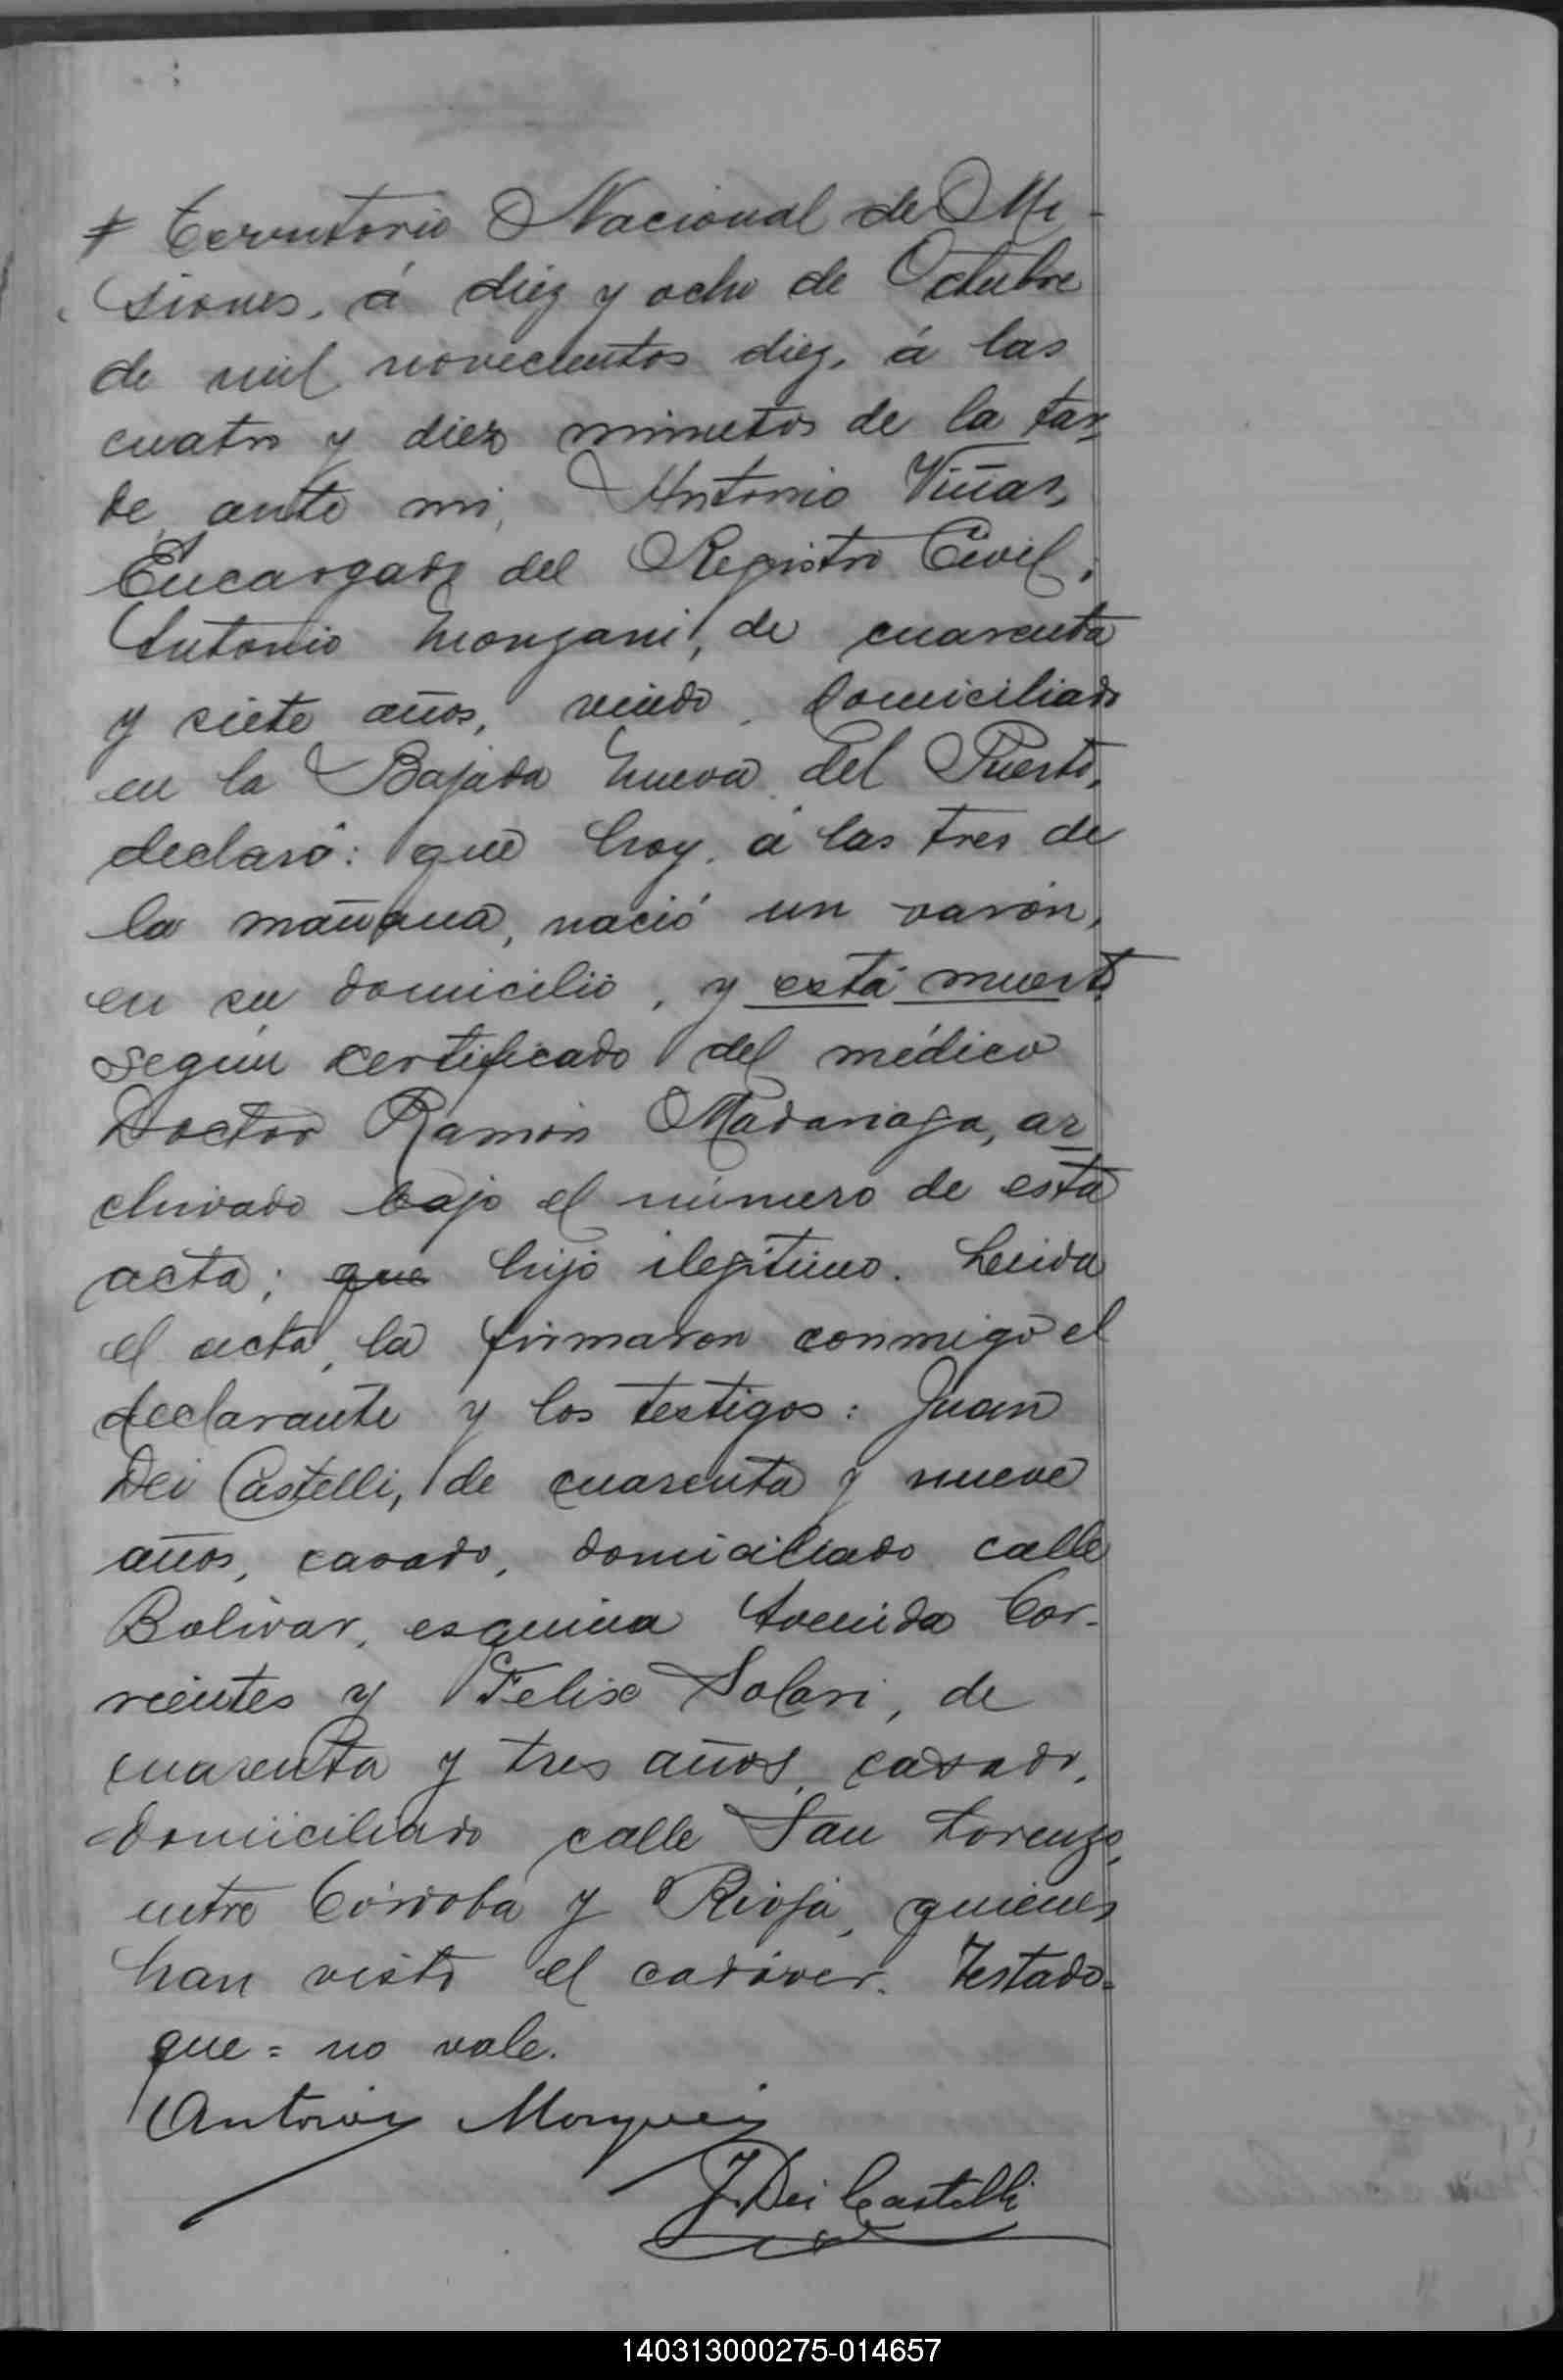 Territorio Nacional de Mi-
siones, á diez y ocho de Octubre
de mil novecientos diez, á las
cuatro y diez minutos de la tar-
de, ante mi, Antonio Viñas,
Encargado del Registro Civil,
Antonio Monzani, de cuarenta
y siete años, viudo, domiciliado
en la Bajada Nueva del Puerto,
declaró: que hoy, á las tres de
la mañana, nació un varón,
en su domicilio, y está muerto
según certificado del médico
Doctor Ramón Madariaga, ar-
chivado bajo el número de esta
acta; que hijo ilegítimo. Leida
el acta, la firmaron conmigo el
declarante y los testigos: Juan
Dei Castelli, de cuarenta y nueve
años, casado, domiciliado calle
Bolivar, esquina Avenida Cor-
rientes y Felix Solari, de
cuarenta y tres años, casado,
domiciliado calle San Lorenzo,
entre Córdoba y Rioja, quienes
han visto el cadáver. Testado=
que= no vale.
Antonio
J. Dei Castelli
140313000275-014657